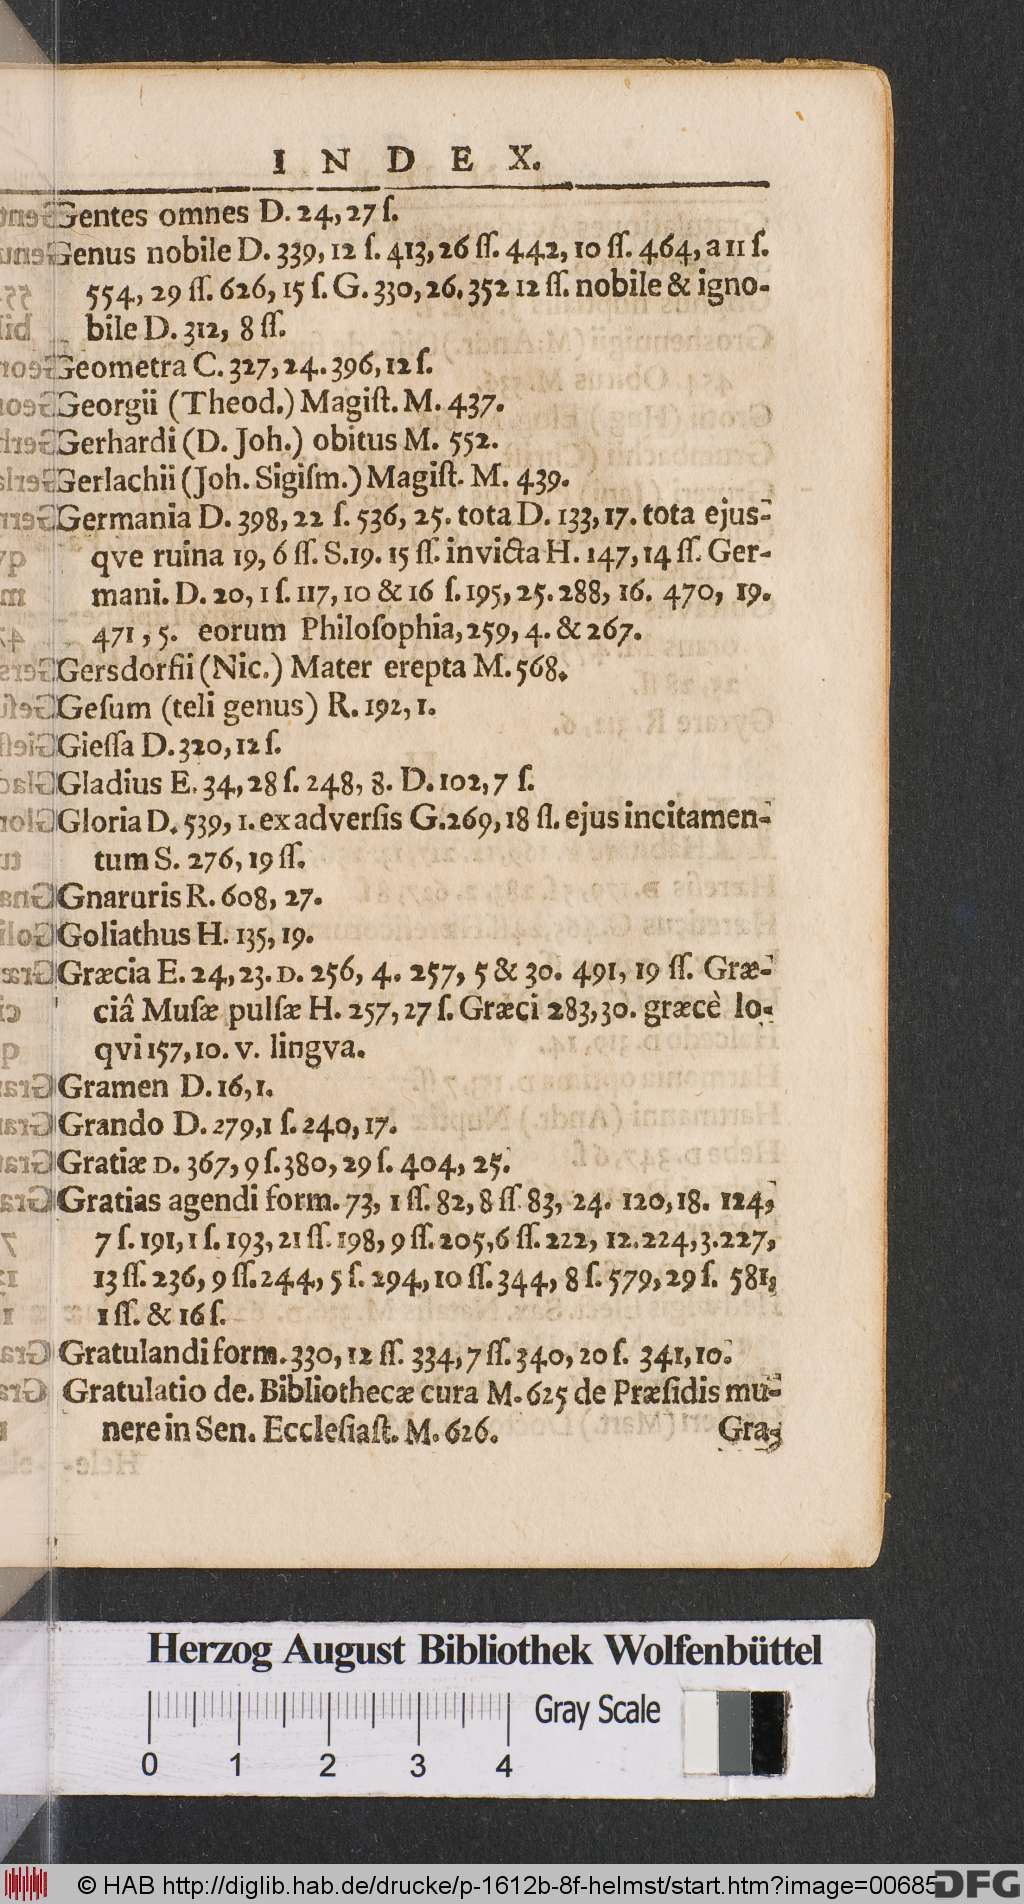 INDEX.
Gentes omnes D. 24, 27 ſ.
Genus nobile D. 339, 12 ſ. 413, 26 ſſ. 442, 10 ſſ. 464, a 11 ſ.
554, 29 ſſ. 626, 15 ſ. G. 330, 26. 352 12 ſſ. nobile & igno-
bile D. 312, 8 ſſ.
Geometra C. 327, 24. 396, 12 ſ.
Georgii (Theod.) Magiſt. M. 437.
Gerhardi (D. Joh.) obitus M. 552.
Gerlachii (Joh. Sigiſm.) Magiſt. M. 439.
Germania D. 398, 22 ſ. 536, 25. tota D. 133, 17. tota ejus-
qve ruina 19, 6 ſſ. S. 19. 15 ſſ. invicta H. 147, 14 ſſ. Ger-
mani. D. 20, 1 ſ. 117, 10 & 16 ſ. 195, 25. 288, 16. 470, 19.
471, 5. eorum Philoſophia, 259, 4. & 267.
Gersdorfii (Nic.) Mater erepta M. 568.
Geſum (teli genus) R. 192, 1.
Gieſſa D. 320, 12 ſ.
Gladius E. 34, 28 ſ. 248, 8. D. 102, 7 ſ.
Gloria D. 539, 1. ex adverſis G. 269, 18 ſſ. ejus incitamen-
tum S. 276, 19 ſſ.
Gnaruris R. 608, 27.
Goliathus H. 135, 19.
Græcia E. 24, 23. D. 256, 4. 257, 5 & 30. 491, 19 ſſ. Græ-
ciâ Muſæ pulſæ H. 257, 27 ſ. Græci 283, 30. græcè lo-
qvi 157, 10. v. lingva.
Gramen D. 16, 1.
Grando D. 279, 1 ſ. 240, 17.
Gratiæ D. 367, 9 ſ. 380, 29 ſ. 404, 25.
Gratias agendi form. 73, 1 ſſ. 82, 8 ſſ. 83, 24. 120, 18. 124,
7 ſ. 191, 1 ſ. 193, 21 ſſ. 198, 9 ſſ. 205, 6 ſſ. 222, 12. 224, 3. 227,
13 ſſ. 236, 9 ſſ. 244, 5 ſ. 294, 10 ſſ. 344, 8 ſ. 579, 29 ſ. 581,
1 ſſ. & 16 ſ.
Gratulandi form. 330, 12 ſſ. 334, 7 ſſ. 340, 20 ſ. 341, 10.
Gratulatio de. Bibliothecæ cura M. 625 de Præſidis mu-
nere in Sen. Eccleſiaſt. M. 626.
Gra-
Herzog August Bibliothek Wolfenbüttel
Gray Scale
0 1 2 3 4
© HAB http://diglib.hab.de/drucke/p-1612b-8f-helmst/start.htm?image=00685
DFG